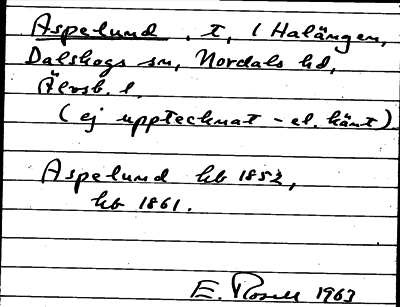 Aspelund, t, i Halängen,
Dalskogs sn, Nordals hd,
Älvsb. l.
(ej upptecknat - el. känt).
Aspelund hb 1852,
hb 1861.
E. Rosell 1963